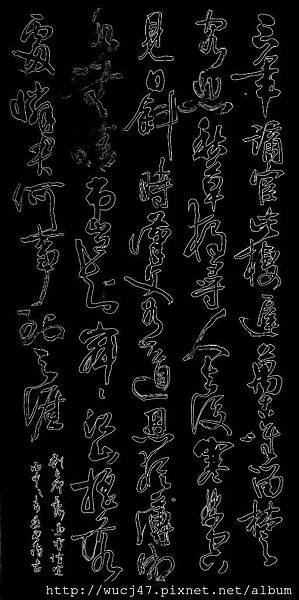 三年謫宦此棲遲萬古惟留楚
客悲秋草獨尋人去後寒林空
見日斜時漢文有道恩猶薄湘
水無情弔豈知寂々江山搖落
處憐君何事到天涯
劉長卿
http://wucj47.pixnet.net/album